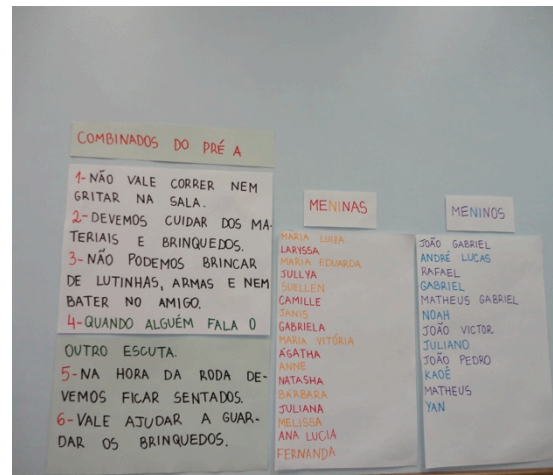 COMBINADOS DO PRÉ A
1- NÃO VALE CORRER NEM
GRITAR NA SALA.
2- DEVEMOS CUIDAR DOS MA-
TERIAIS E BRINQUEDOS.
3- NÃO PODEMOS BRINCAR
DE LUTINHAS, ARMAS E NEM
BATER NO AMIGO.
4- QUANDO ALGUÉM FALA O
OUTRO ESCUTA.
5- NA HORA DA RODA DE-
VEMOS FICAR SENTADOS.
6- VALE AJUDAR A GUAR-
DAR OS BRINQUEDOS.
MENINAS
MARIA LUIZA
LARYSSA
MARIA EDUARDA
JULLYA
SUELLEN
CAMILLE
JANIS
GABRIELA
MARIA VITÓRIA
ÁGATHA
ANNE
NATASHA
BÁRBARA
JULIANA
MELISSA
ANA LUCIA
FERNANDA
MENINOS
JOÃO GABRIEL
ANDRÉ LUCAS
RAFAEL
GABRIEL
MATHEUS GABRIEL
NOAH
JOÃO VICTOR
JULIANO
JOÃO PEDRO
KAOÊ
MATHEUS
YAN